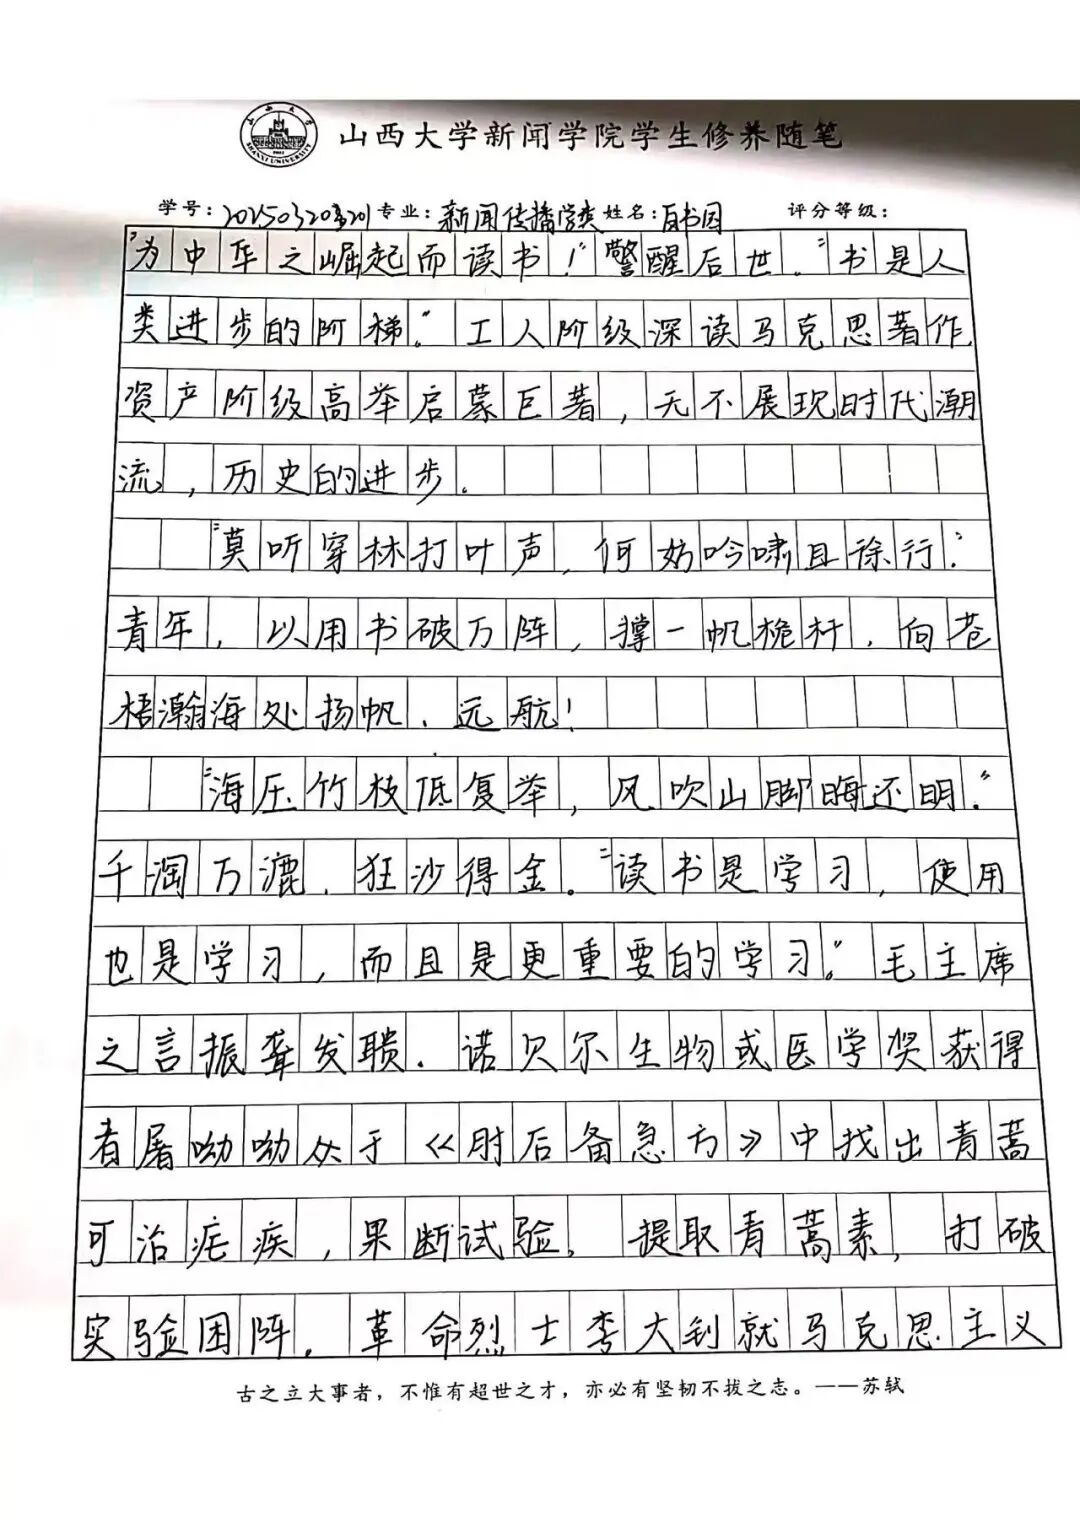 山西大学新闻学院学生修养随笔
学号: 专业: 新闻传播学类 姓名: 评分等级:
"为中华之崛起而读书!"警醒后世."书是人
类进步的阶梯."工人阶级深读马克思著作
资产阶级高举启蒙巨著,无不展现时代潮
流,历史的进步.
"莫听穿林打叶声,何妨吟啸且徐行."
青年,以用书破万阵,撑一帆桅杆,向苍
梧瀚海处扬帆.远航!
"海压竹枝低复举,风吹山脚晦还明."
千淘万漉.狂沙得金."读书是学习,使用
也是学习,而且是更重要的学习."毛主席
之言振聋发聩.诺贝尔生物或医学奖获得
者屠呦呦从于《肘后备急方》中找出青蒿
可治疟疾,果断试验.提取青蒿素,打破
实验困阵.革命烈士李大钊就马克思主义
古之立大事者,不惟有超世之才,亦必有坚韧不拔之志。——苏轼